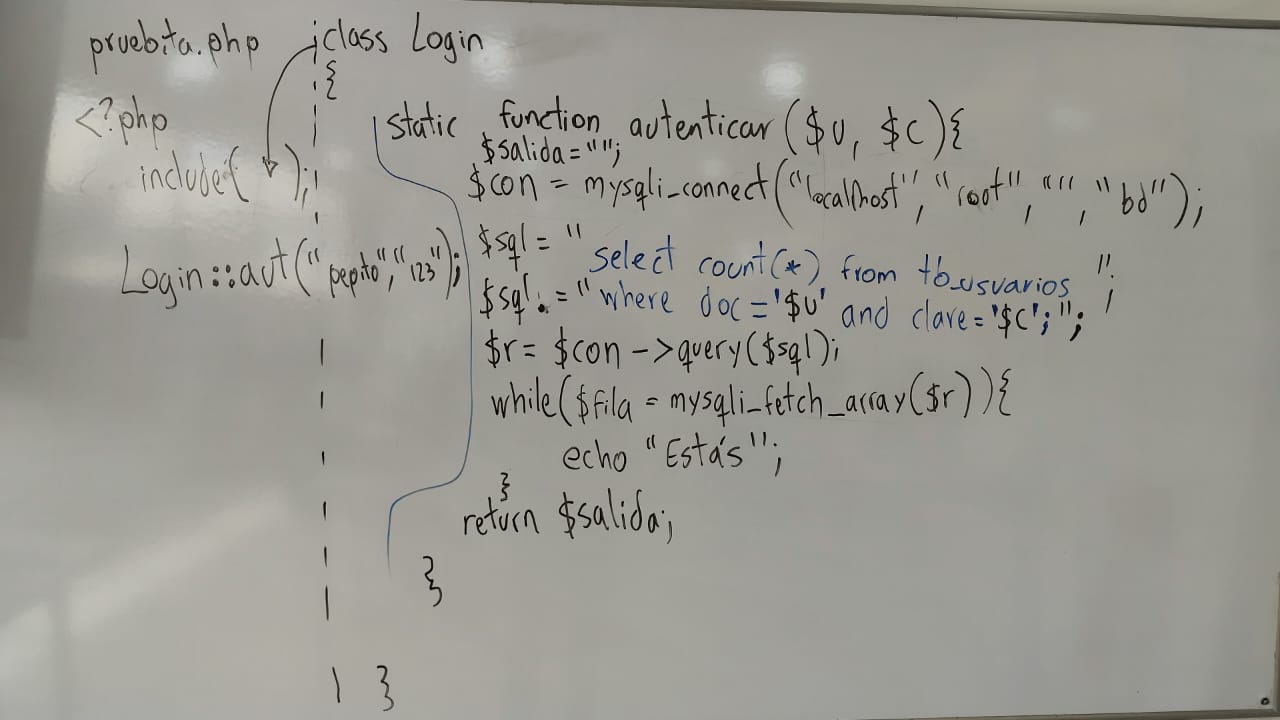 pruebita.php
<?php
include( );
Login::aut("pepito","123");
class Login
{
static function autenticar($u, $c){
$salida="";
$con = mysqli_connect("localhost", "root", "", "bd");
$sql = "select count(*) from tb_usuarios ";
$sql .= "where doc='$u' and clave='$c';";
$r= $con->query($sql);
while($fila = mysqli_fetch_array($r)){
echo "Estás";
}
return $salida;
}
}